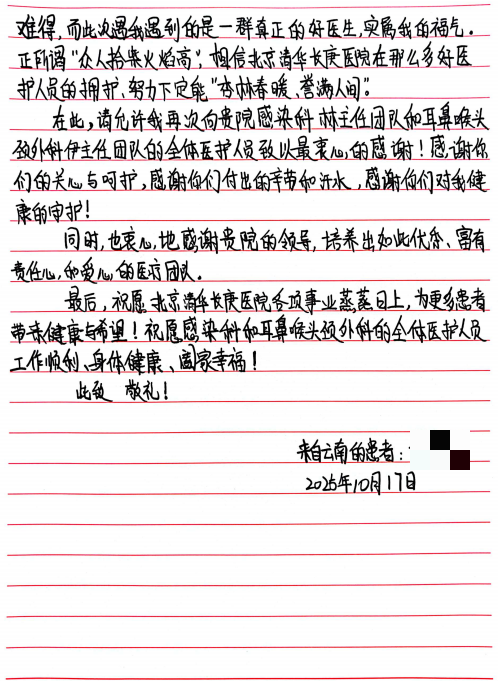 难得，而此次遇我遇到的是一群真正的好医生，实属我的福气。
正所谓“众人拾柴火焰高”，相信北京清华长庚医院在那么多好医
护人员的拥护、努力下定能“杏林春暖、誉满人间”。
在此，请允许我再次向贵院感染科 林主任团队和耳鼻喉头
颈外科伊主任团队的全体医护人员致以最衷心的感谢！感谢你
们的关心与呵护，感谢你们付出的辛劳和汗水，感谢你们对我健
康的守护！
同时，也衷心地感谢贵院的领导，培养出如此优秀、富有
责任心和爱心的医疗团队。
最后，祝愿 北京清华长庚医院各项事业蒸蒸日上，为更多患者
带来健康与希望！祝愿感染科和耳鼻喉头颈外科的全体医护人员
工作顺利、身体健康、阖家幸福！
此致 敬礼！
来自云南的患者：
2025年10月17日